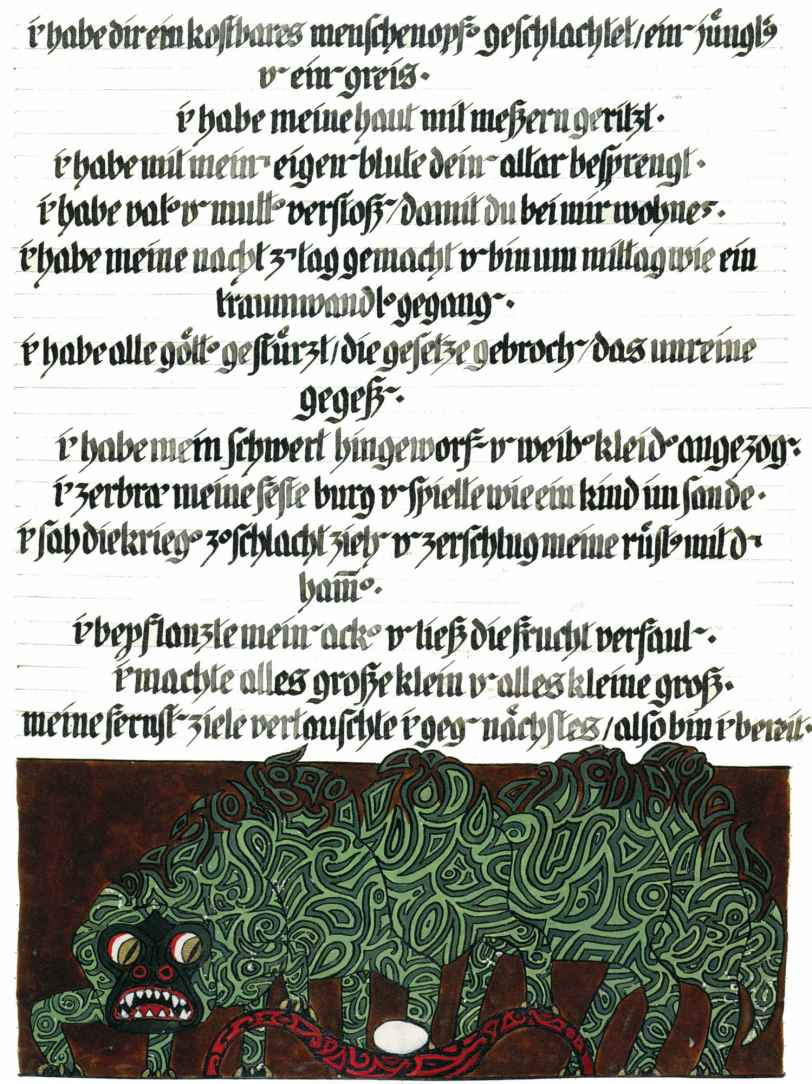 i' habe dir ein kostbares menschenopf° geschlachtet/ein~ jüngl'g
v~ ein~ greis.
i' habe meine haut mit meßern geritzt.
i' habe mit mein~ eigen~ blute dein~ altar besprengt.
i' habe vat° v~ mutt° verstoß~/damit du bei mir wohnes~.
i' habe meine nacht z~ tag gemacht v~ bin um mittag wie ein
traumwandl° gegang~.
i' habe alle gött° gestürzt/die gesetze gebroch~/das unreine
gegeß~.
i' habe mein schwert hingeworf~ v~ weib° kleid° angezog~.
i' zerbra' meine feste burg v~ spielte wie ein kind im sande.
i' sah die krieg° z° schlacht zieh~ v~ zerschlug meine rüst° mit d~
ham̄°.
i' bepflanzte mein~ ack° v~ ließ die frucht verfaul~.
i' machte alles große klein v~ alles kleine groß~.
meine fernst~ ziele vertauschte i' geg~ nächstes/also bin i' bereit.